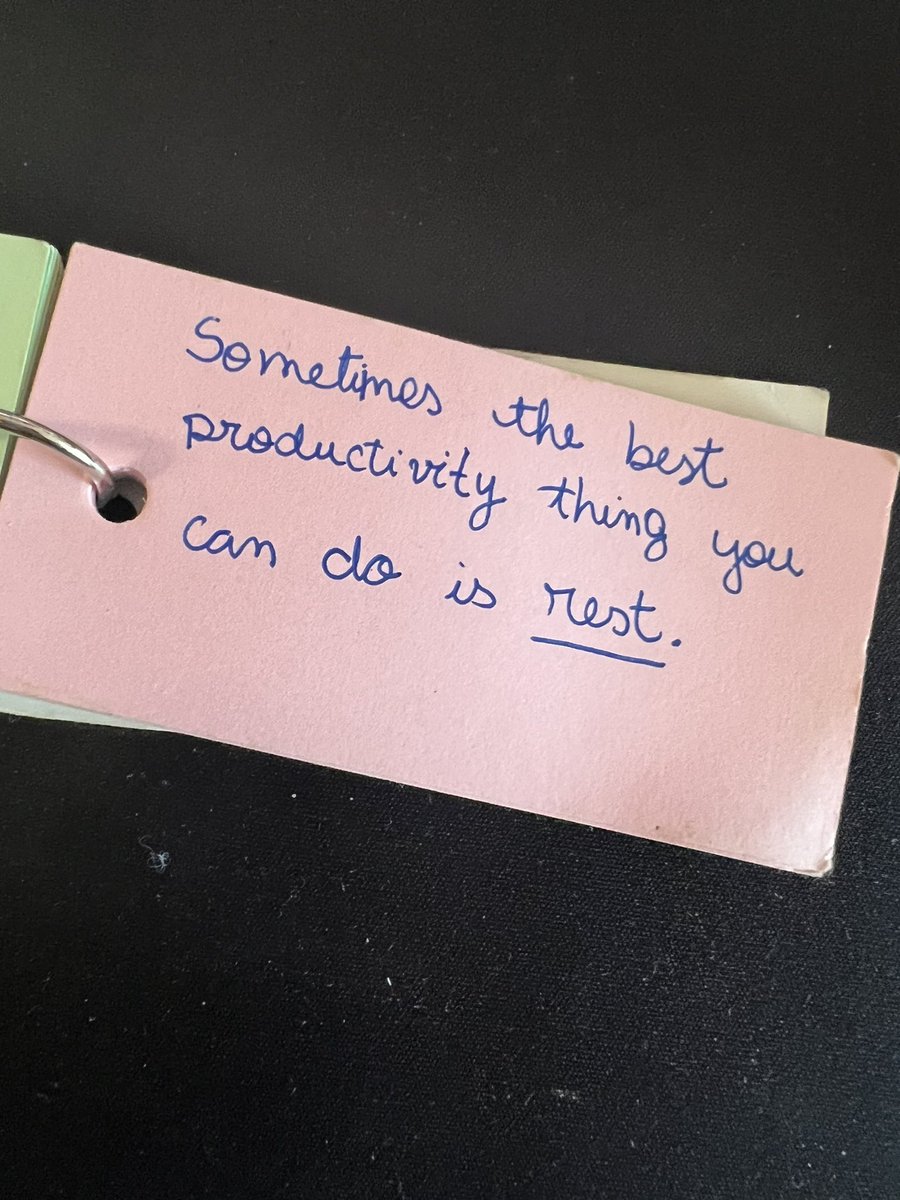 Sometimes the best
productivity thing you
can do is rest.